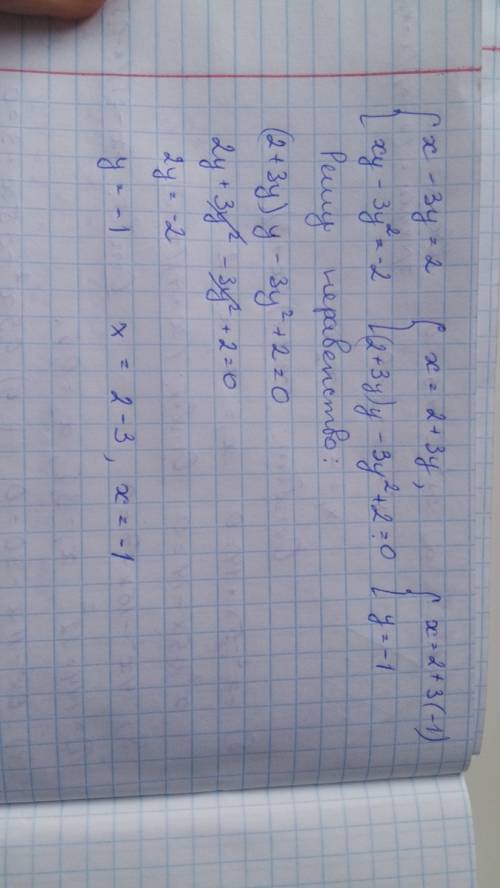 { x - 3y = 2 { x = 2 + 3y, { x = 2 + 3(-1)
{ xy - 3y² = -2 { (2 + 3y)y - 3y² + 2 = 0 { y = -1
Решу неравенство:
(2 + 3y) y - 3y² + 2 = 0
2y + 3y² - 3y² + 2 = 0
2y = -2
y = -1 x = 2 - 3, x = -1